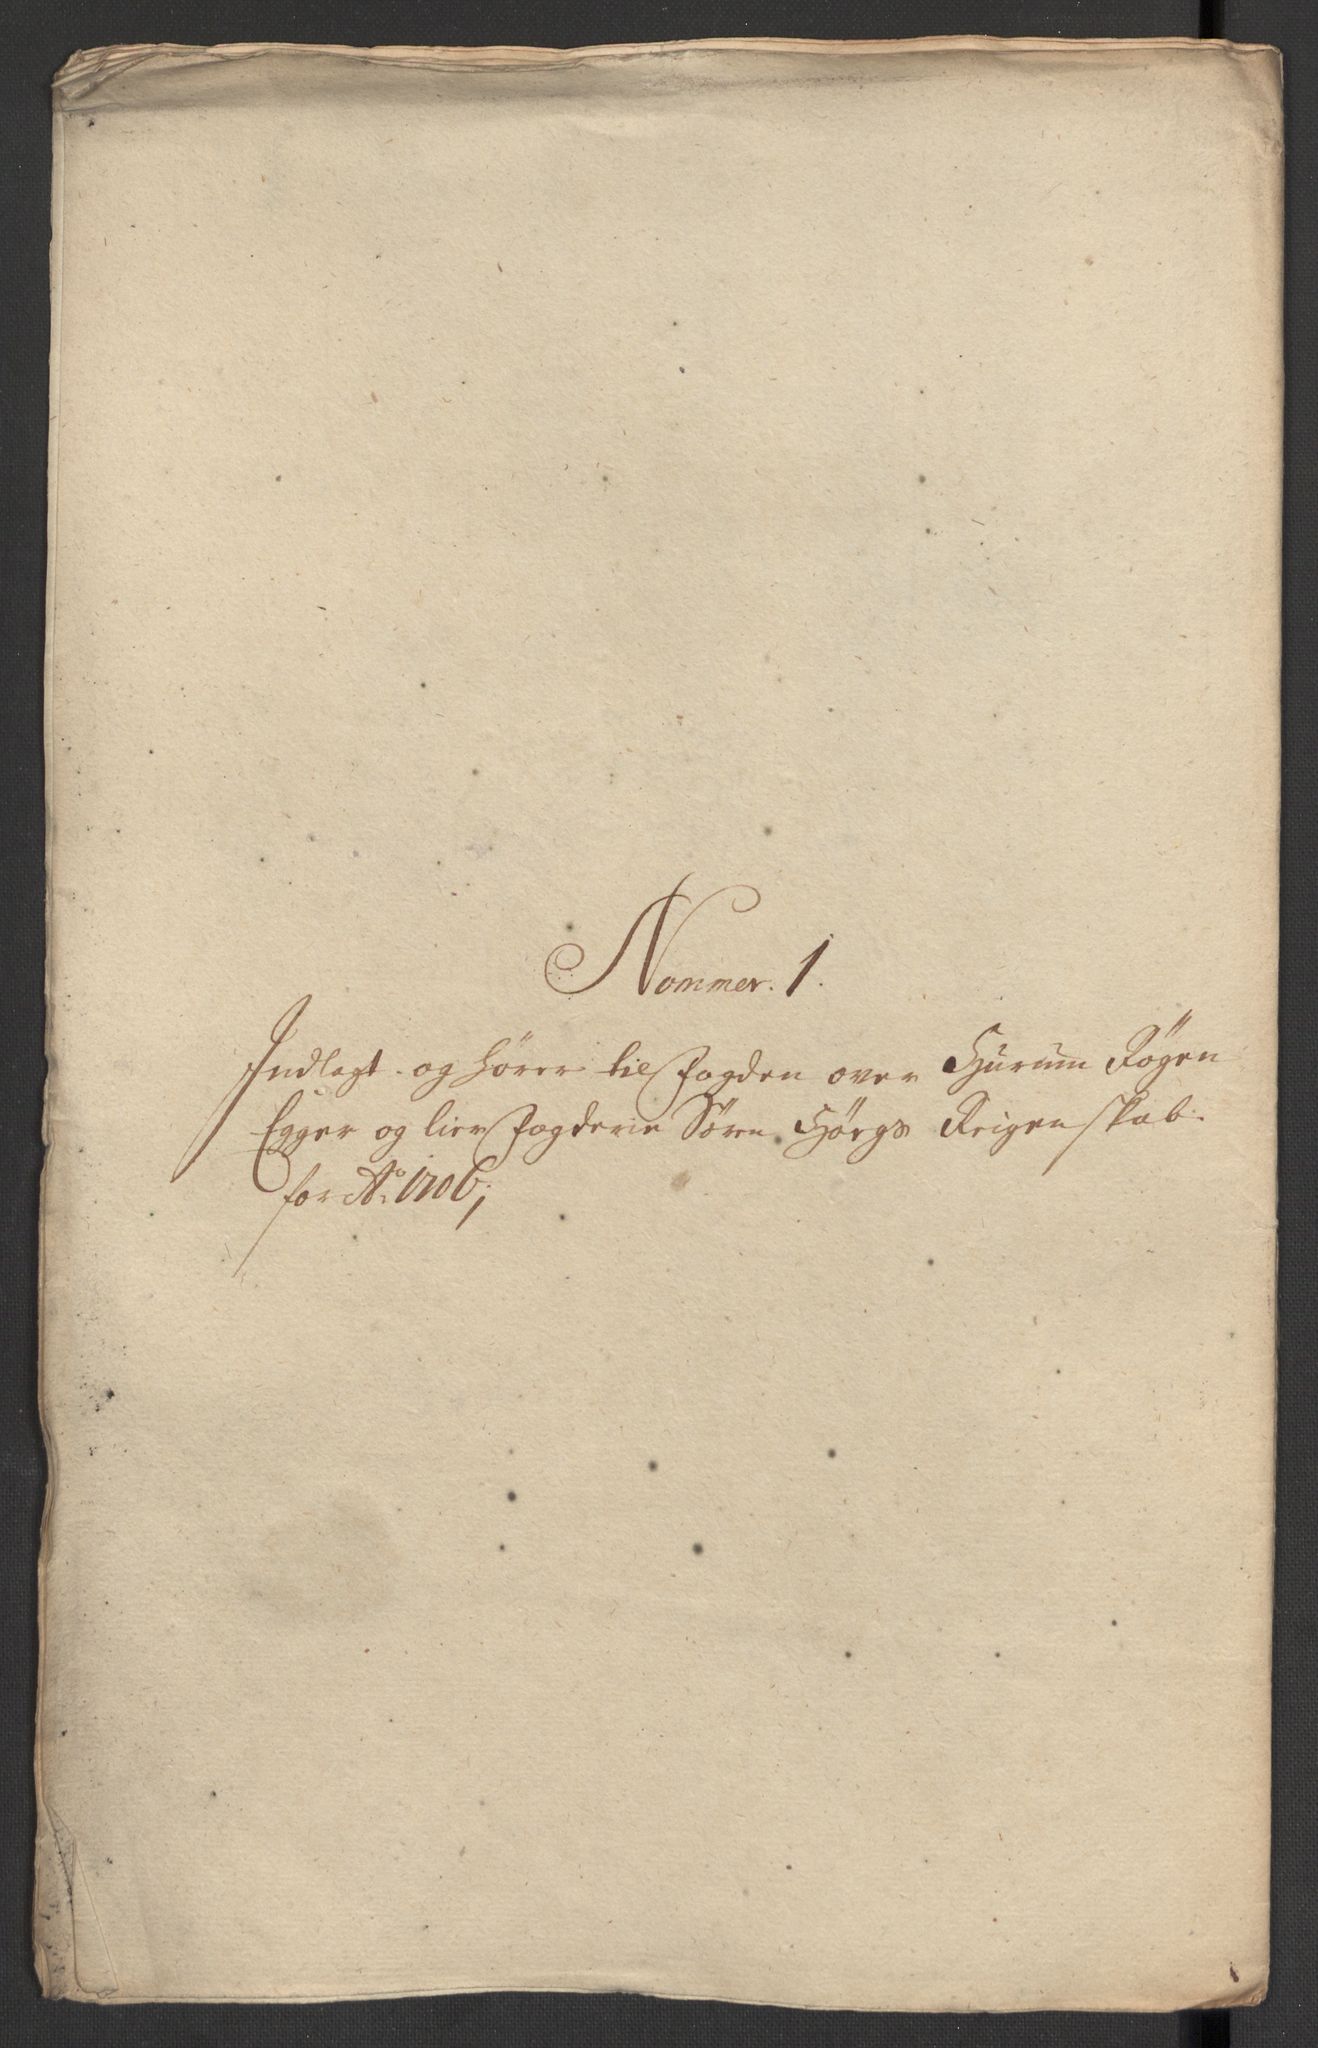 Nommer. 1.
Indlagt og hører til fogden over Hurum Røgen
Egger og lier fogderie Søren Hørgs Reigenskab.
for Ao. 1706;